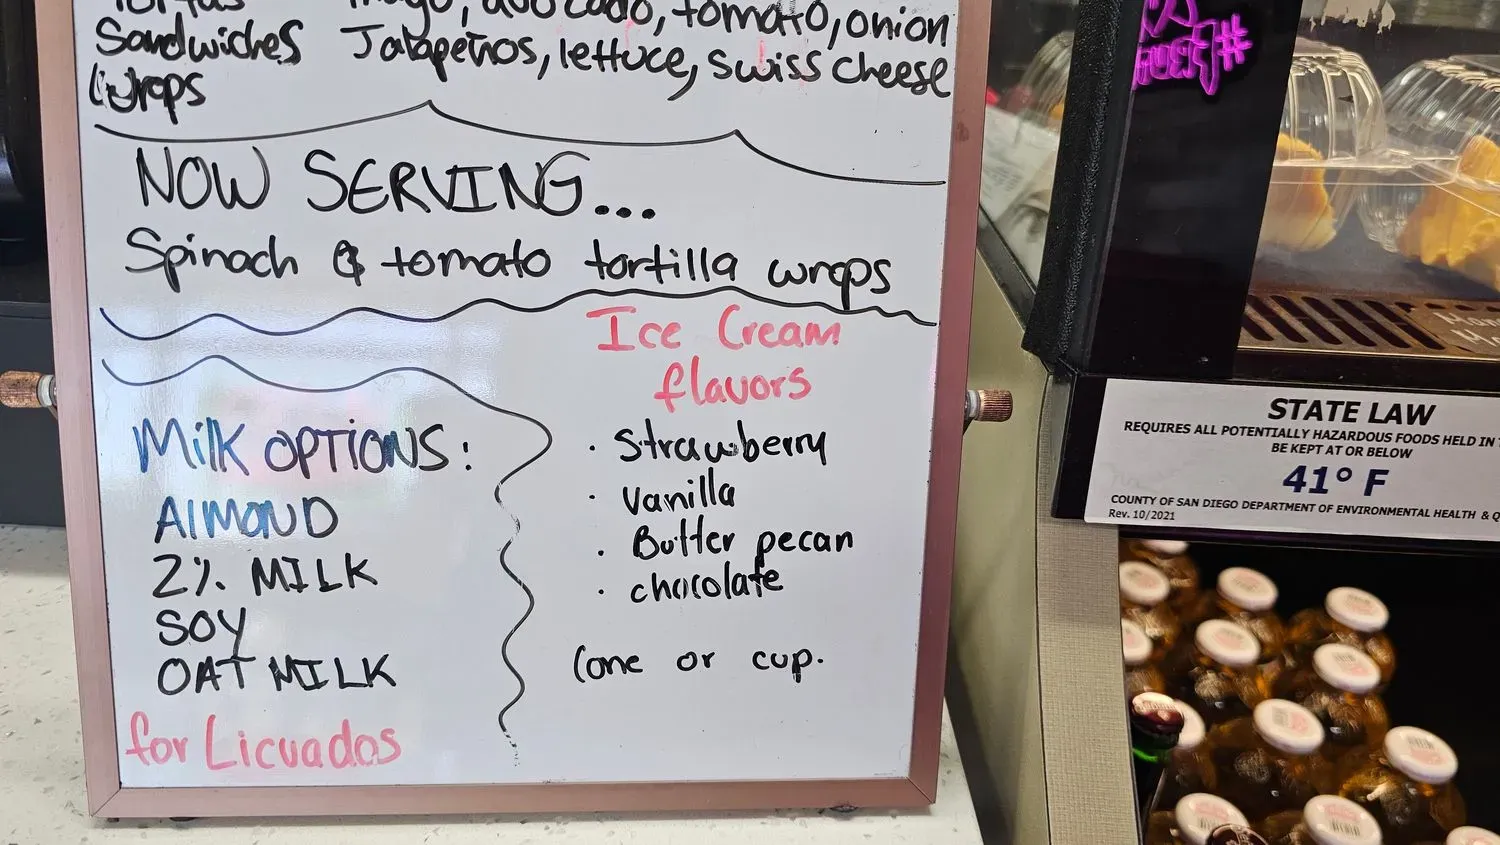 Tortas mayo, avocado, tomato, onion
Sandwiches Jalapeños, lettuce, swiss cheese
Wraps
NOW SERVING...
Spinach & tomato tortilla wraps
Ice Cream
flavors
· Strawberry
· Vanilla
· Butter pecan
· chocolate
Cone or cup.
Milk OPTIONS:
AlMOND
2% MILK
SOY
OAT MILK
for Licuados
STATE LAW
REQUIRES ALL POTENTIALLY HAZARDOUS FOODS HELD IN
BE KEPT AT OR BELOW
41° F
COUNTY OF SAN DIEGO DEPARTMENT OF ENVIRONMENTAL HEALTH & Q
Rev. 10/2021